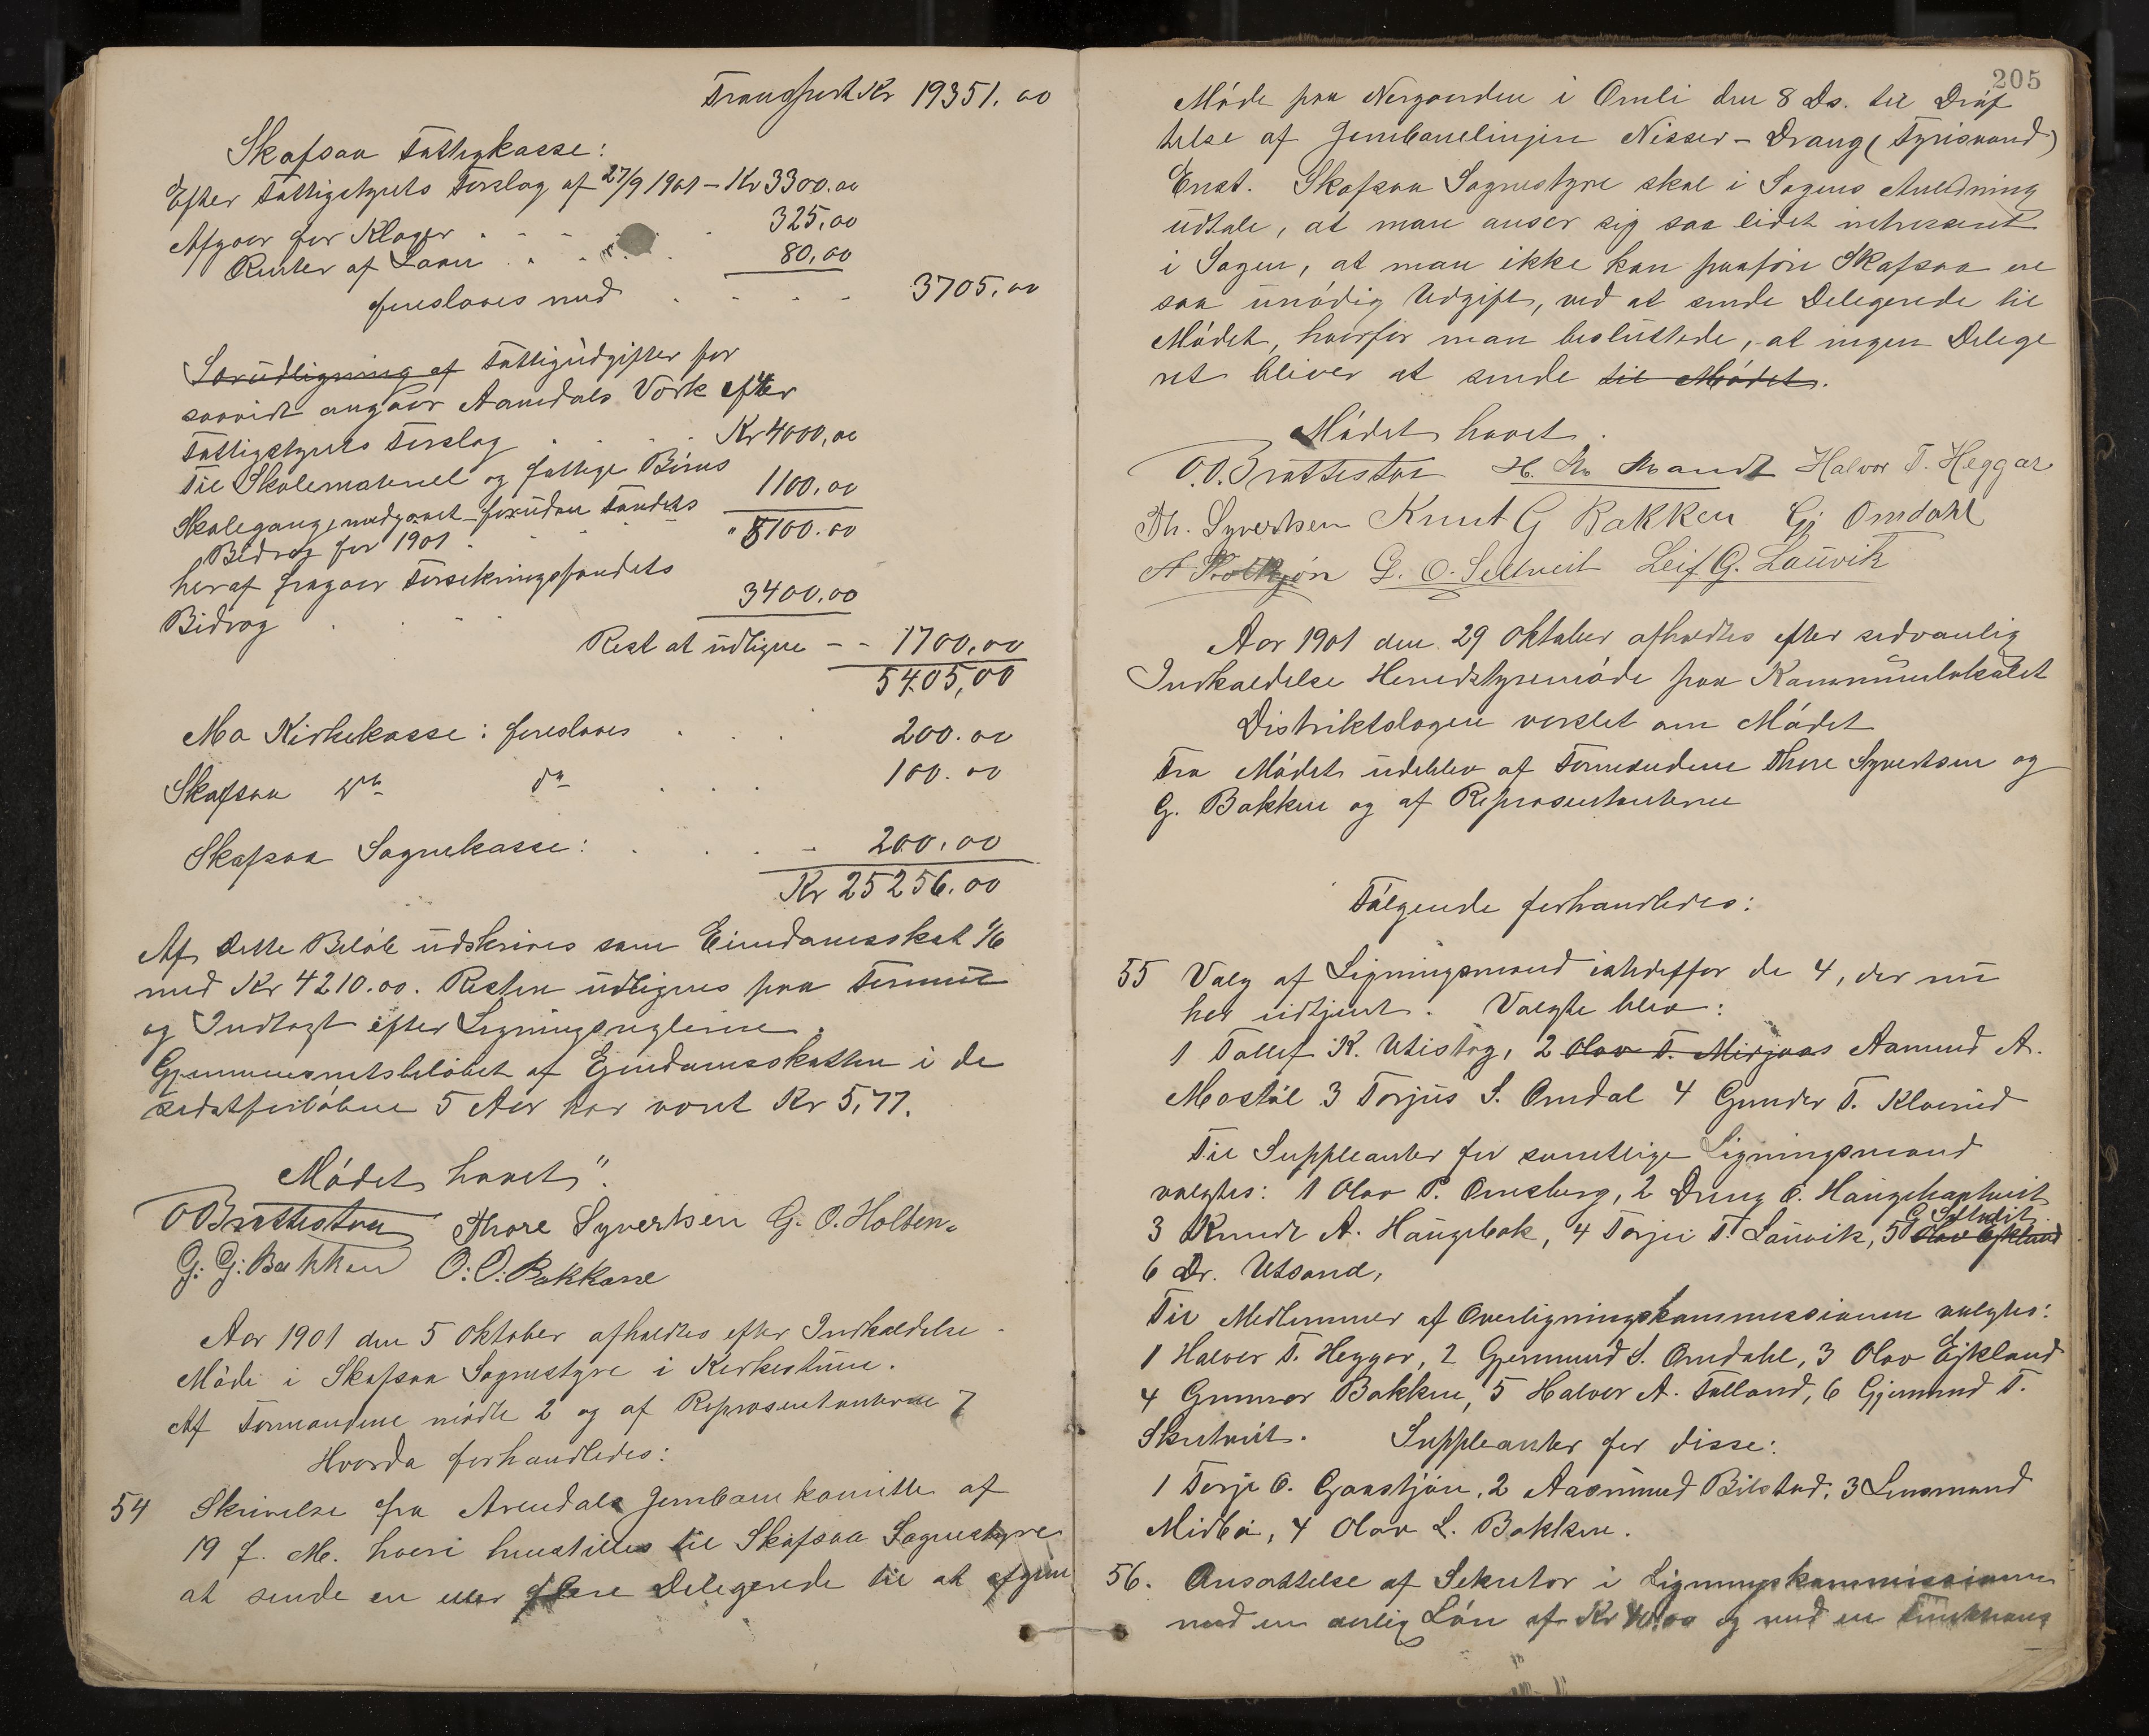 Transport Kr 19351.00
Skafsaa Fattigkasse:
Efter Fattigstyrets Forslag af 27/9 1901 - Kr 3300.00
Afgaar for Klager . . . 325,00
Renter af Laan . . . 80,00
foreslaaes med . . . . 3705,00
Særudligning af Fattigudgifter for
saavidt angaar Aamdals Værk efter
Fattigstyrets Forslag . . . Kr 4000,00
Til Skolemateriel og fattige Børns
Skolegang medgaaet foruden Fondets 1100,00
Bidrag for 1901 . . . " 5100.00
heraf fragaar Forsikringsfondets
Bidrag . . . . 3400.00
Rest at udligne - - 1700,00
5405,00
Mo Kirkekasse: foreslaaes . . . 200.00
Skafsaa do do . . . 100.00
Skafsaa Sognekasse: . . . . 200.00
Kr 25256.00
Af dette Beløb udskrives som Eiendomsskat 1/6
med Kr 4210.00. Resten udlignes paa Formue
og Indtægt efter Ligningsreglerne.
Gjennemsnitsbeløbet af Eiendomsskatten i de
sidstforløbne 5 Aar har været Kr 5,77.
Mødet hævet".
O Brattestaa Thore Syvertsen G. O. Holten
G. G. Bakken O. O. Bakkane
Aar 1901 den 5 Oktober afholdtes efter Indkaldelse
Møde i Skafsaa Sognestyre i Kirkestuen.
Af Formændene mødte 2 og af Repræsentanterne 7
Hvorda forhandledes:
54 Skrivelse fra Arendals Jernbanekomitte af
19 f. M. hvori henstilles til Skafsaa Sognestyre
at sende en eller flere Delegerede til at afgive
205
Møde paa Nergaarden i Omli den 8 Ds. til Drøf
telse af Jernbanelinjen Nisser - Drang (Fyrisvand)
Enst. Skafsaa Sognestyre skal i Sagens Anledning
udtale, at man anser sig saa lidet interesseret
i Sagen, at man ikke kan paaføre Skafsaa en
saa unødig Udgift, ved at sende Delegerede til
Mødet, hvorfor man besluttede, at ingen Delege
ret bliver at sende til Mødet.
Mødet hævet.
O. O. Brattestaa H. M. Mandt Halvor T. Heggar
Th. Syvertsen Knut G Bakken Gj Omdahl
G. O. Seltveit Leif G. Lauvik
Aar 1901 den 29 Oktober afholdtes efter sedvanlig
Indkaldelse Herredstyremøde paa Kommunelokalet
Distriktslægen varslet om Mødet
Fra Mødet udeblev af Formændene Thore Syvertsen og
G. Bakken og af Repræsentanterne
Følgende forhandledes:
55 Valg af Ligningsmænd istedetfor de 4, der nu
har udtjent. Valgte blev:
1 Tallef K. Utistog, 2 Olav T. Mirjaas Aamund A.
Mostøl 3 Torjus S. Omdal 4 Gunder T. Klverud
Til Suppleanter for samtlige Ligningsmænd
valgtes: 1 Olav P. Omsberg, 2 Dreng O. Haugehaatveit
3 Knudt A. Haugebak, 4 Torjei T. Lauvik, 5 Olav Eikland
G. Seltveit
6 Dr. Utsond,
Til Medlemmer af Overligningskommissionen valgtes:
1 Halvor T. Heggar, 2 Gjermund S. Omdahl, 3 Olav Eikland
4 Gunnar Bakken, 5 Halvor A. Folland, 6 Gjermund T.
Skutveit. Suppleanter for disse:
1 Terje O. Gjaastjøn, 2 Aasmund Bilstad, 3 Lensmand
Midbø, 4 Olav L. Bakken.
56. Ansættelse af Sekretær i Ligningskommissionen
med en aarlig Løn af Kr 40.00 og med en